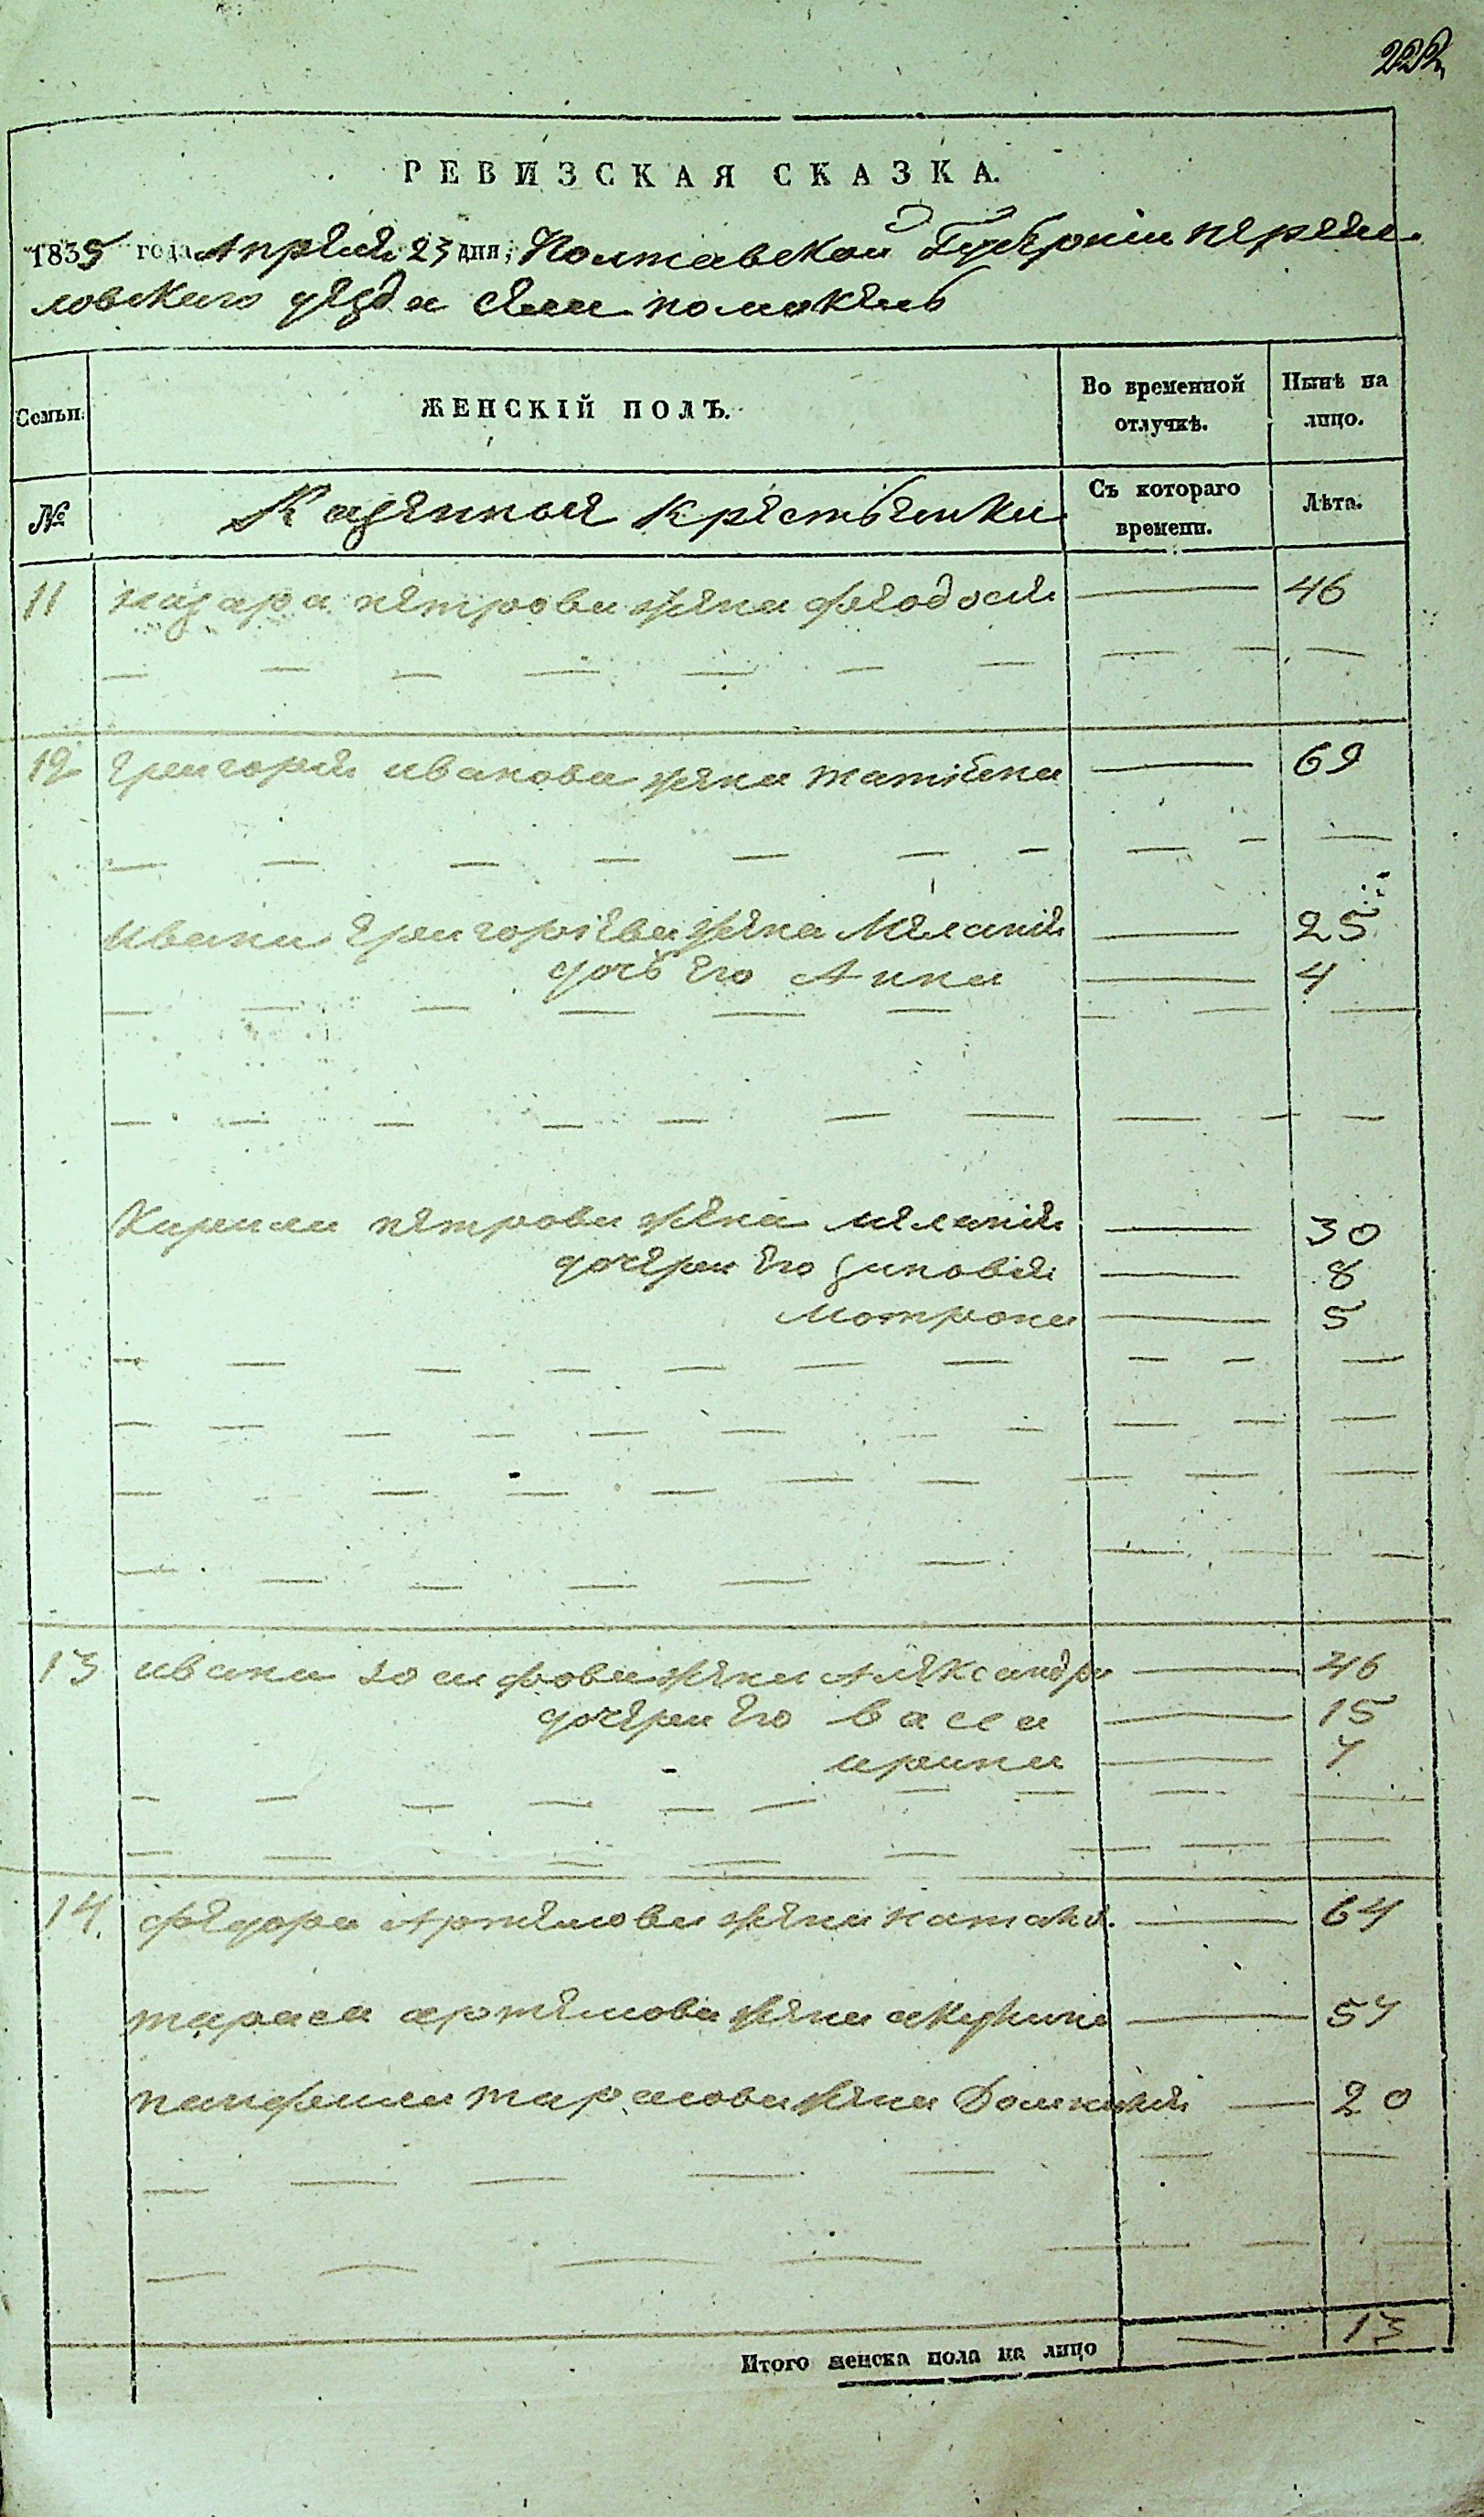 222
РЕВИЗСКАЯ СКАЗКА.
1835 года Апреля 23 дня, Полтавской Губернии переяс
ловского уезда села помокель
Семьи.
ЖЕНСКІЙ ПОЛЪ.
Во временной отлучкѣ.
Нынѣ на лицо.
№
Казенные крестьянки
Съ котораго времени.
Лѣта.
11 назара петрова жена феодосия 46
12 григория иванова жена татіяна 69
Ивана григоріева жена Меланія 25
дочь его Анна 4
Кирила петрова жена меланія 30
дочери его зиновія 8
Мотрона 5
13 ивана иосифова жена Александра 46
дочери его васса 15
ирина 7
14. федора Артемова жена наталия 64
тараса артемова жена акулина 57
панфила тарасова жена Домникия 20
Итого женска пола на лицо 13